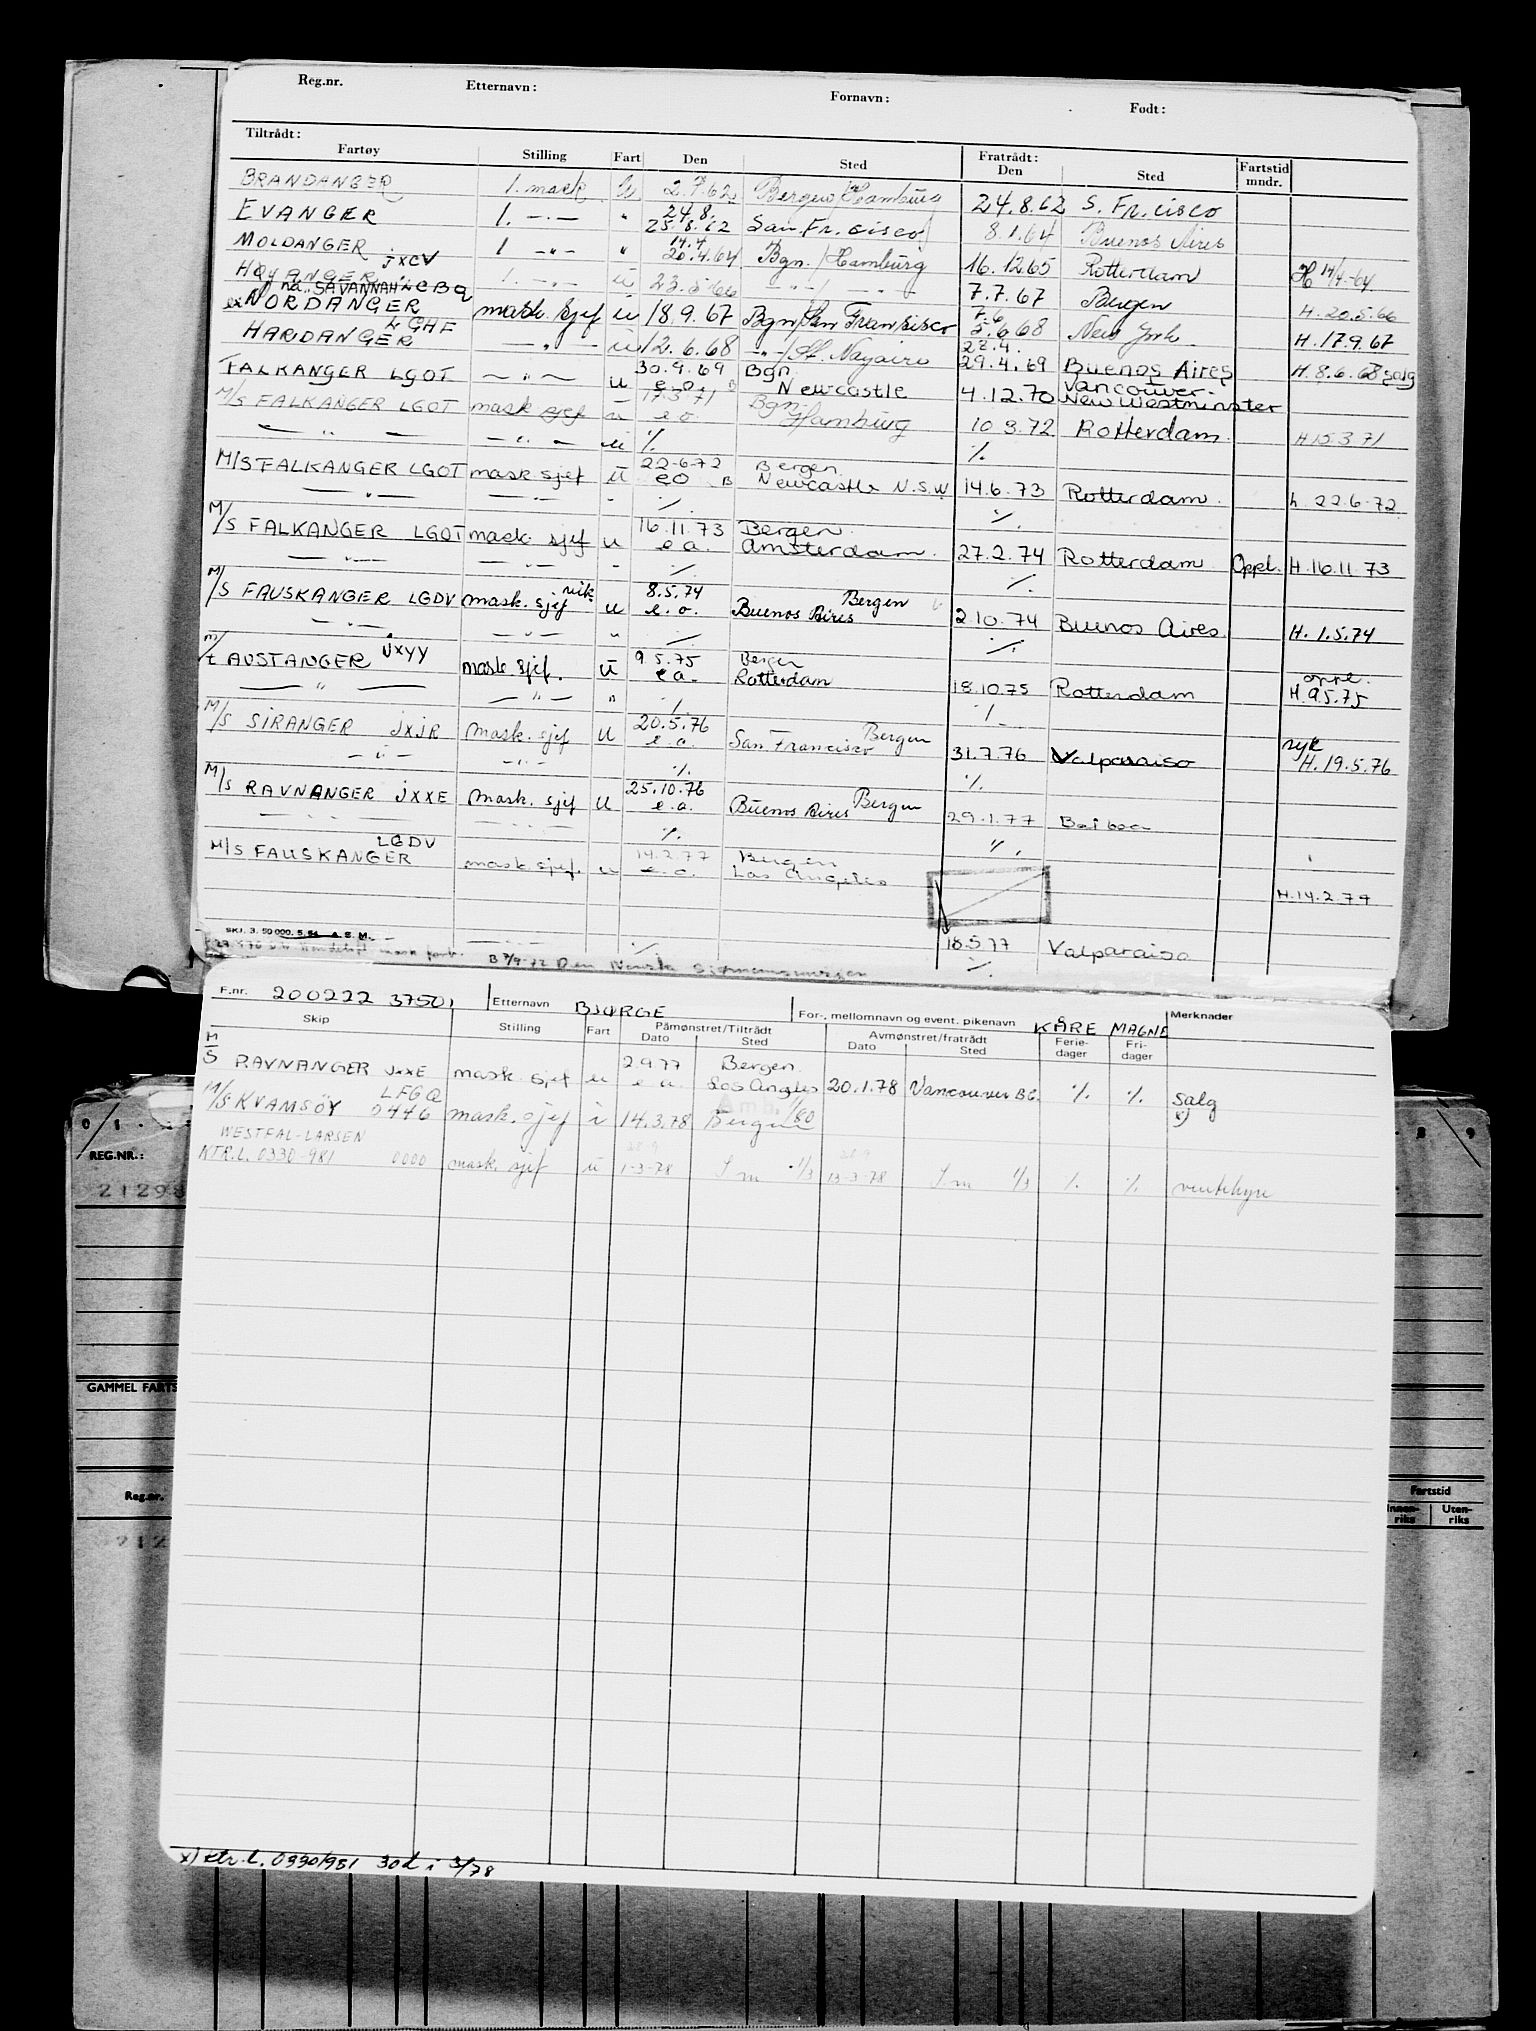 Reg.nr. Etternavn: Fornavn: Født:
Tiltrådt: Fratrådt:
Fartøy Stilling Fart Den Sted Den Sted Fartstid mndr.
BRANDANGER 1. mask u 2.7.62 Bergen/Hamburg 24.8.62 S. Fr.cisco
EVANGER 1. -.- " 24.8. 25.8.62 San Fr.cisco 8.1.64 Buenos Aires
MOLDANGER JXCV 1 -"- " 14.4 20.4.64 Bgn./Hamburg 16.12.65 Rotterdam H 14/4-64
HØYANGER 1. -"- u 23.5.66 -"-/-"- 7.7.67 Bergen H. 20.5.66
nå. SAVANNAH LCBQ
ex NORDANGER mask. sjef u 18.9.67 Bgn/San Fransisco 7.6 5.6.68 New York H. 17.9.67
HARDANGER LGHF -"- u 12.6.68 -"-/St. Nazaire 22.4. 29.4.69 Buenos Aires H. 8.6.68 salg
FALKANGER LGOT -"- u 30.9.69 e.o. B Bgn. Newcastle 4.12.70 Vancouver- New Westminster
M/S FALKANGER LGOT mask sjef u 17.3.71 e.o. Bgn. Hamburg 10.3.72 Rotterdam H 15.3.71
-"- -"- u ./. ./.
M/S FALKANGER LGOT mask sjef u 22-6-72 eo B Bergen Newcastle N.S.W 14.6.73 Rotterdam. h. 22.6-72.
-"- -"- - ./. ./.
M/S FALKANGER LGOT mask. sjef u 16.11.73 e.a. Bergen. Amsterdam. 27.2.74 Rotterdam Oppl. H.16.11 73
-"- -"- - ./. ./.
M/S FAUSKANGER LGDV mask. sjef vik. u 8.5.74 e.o. Bergen Buenos Aires 2.10.74 Buenos Aires. H. 1.5.74
-"- -"- " ./. ./.
m/t AUSTANGER JXYY mask. sjef. u 9.5.75 e a. Bergen Rotterdam 18.10.75 Rotterdam oppl. H.9.5.75
-"- -"- " ./. ./.
M/S SIRANGER JXJR Mask. sjef u 20.5.76 e.a. Bergen San Francisco 31.7.76 Valparaiso syk H. 19.5.76
-"- -"- ./. ./.
M/S RAVNANGER JXXE Mask. sjef u 25.10.76 e.a. Bergen Buenos Aires 29.1.77 Balboa
-"- -"- ./. ./.
M/S FAUSKANGER LGDV mask sjef. u 14.2.77 e.a. Bergen Los Angeles H.14.2.77
18.5.77 Valparaiso
SKJ. 3. 50 000. 5.54 A. E. M.
./. ./.
B 7/9-72 Den Norske
F.nr. 200222 37501 Etternavn BJØRGE For-, mellomnavn og event. pikenavn KÅRE MAGNE Merknader
Skip Stilling Fart Påmønstret/Tiltrådt Dato Sted Avmønstret/fratrådt Dato Sted Ferie- dager Fri- dager
M/S RAVNANGER JXXE mask. sjef u 2.9.77 e a. Bergen. Los Angles 20.1.78 Vancouver BC. ./. ./. Salg
M/S KVAMSØY LFGQ 0446 mask. sjef i 14.3.78 Bergen Amb. 1/80 x)
WESTFAL-LARSEN
KTR.L. 0330-981 0000 mask. sjef u 1-3-78 Sm 1/3 13-3-78 Sm 1/3 ./. ./. ventehyre
x) ktr.l. 0330/981 30d i 3/78
0 1
8 9
REG.NR.:
GAMMEL FARTS
Reg.nr.
Fartstid
Innen- riks Uten- riks